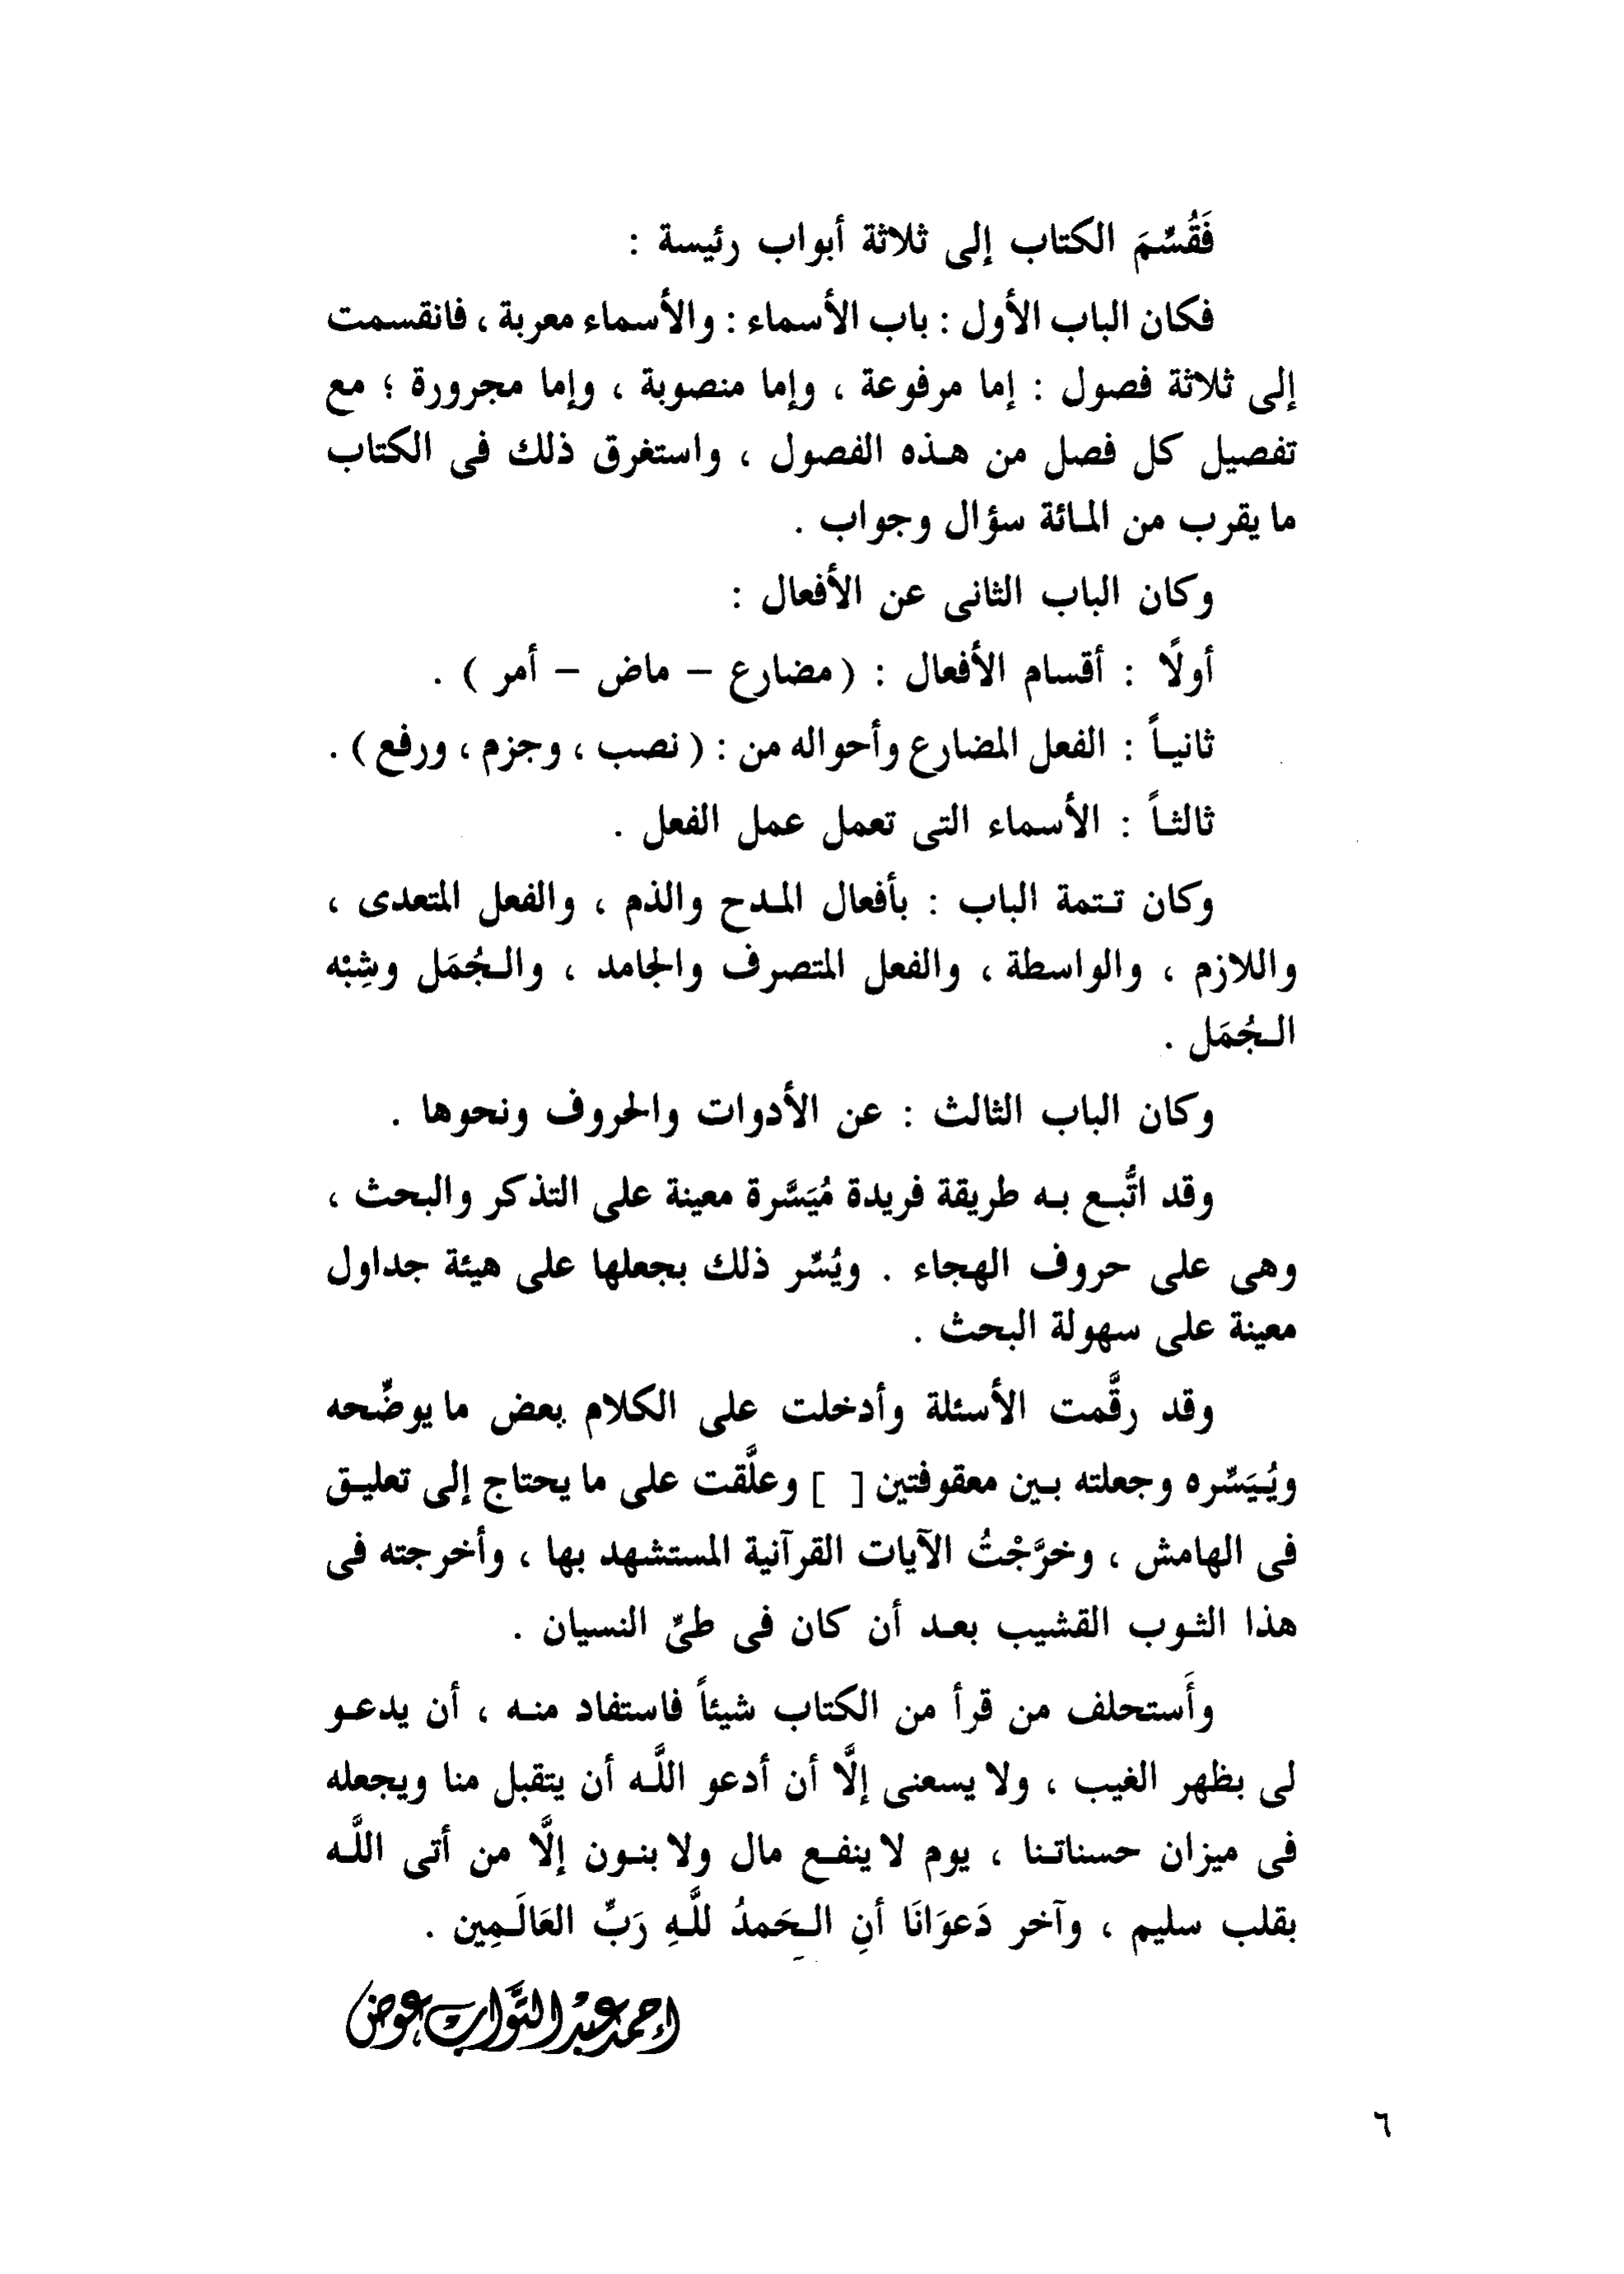 فَقُسِّمَ الكتاب إلى ثلاثة أبواب رئيسة :
فكان الباب الأول : باب الأسماء : والأسماء معربة ، فانقسمت
إلى ثلاثة فصول : إما مرفوعة ، وإما منصوبة ، وإما مجرورة ؛ مع
تفصيل كل فصل من هذه الفصول ، واستغرق ذلك فى الكتاب
ما يقرب من المائة سؤال وجواب .
وكان الباب الثانى عن الأفعال :
أولًا : أقسام الأفعال : ( مضارع – ماض – أمر ) .
ثانياً : الفعل المضارع وأحواله من : ( نصب ، وجزم ، ورفع ) .
ثالثاً : الأسماء التى تعمل عمل الفعل .
وكان تتمة الباب : بأفعال المدح والذم ، والفعل المتعدى ،
واللازم ، والواسطة ، والفعل المتصرف والجامد ، والجُمَل وشِبْه
الجُمَل .
وكان الباب الثالث : عن الأدوات والحروف ونحوها .
وقد اتُّبع به طريقة فريدة مُيَسَّرة معينة على التذكر والبحث ،
وهى على حروف الهجاء . ويُسِّر ذلك بجعلها على هيئة جداول
معينة على سهولة البحث .
وقد رقَّمت الأسئلة وأدخلت على الكلام بعض ما يوضِّحه
ويُيَسِّره وجعلته بين معقوفتين [ ] وعلَّقت على ما يحتاج إلى تعليق
فى الهامش ، وخرَّجْتُ الآيات القرآنية المستشهد بها ، وأخرجته فى
هذا الثوب القشيب بعد أن كان فى طىِّ النسيان .
وأَستحلف من قرأ من الكتاب شيئاً فاستفاد منه ، أن يدعو
لى بظهر الغيب ، ولا يسعنى إلَّا أن أدعو اللَّه أن يتقبل منا ويجعله
فى ميزان حسناتنا ، يوم لا ينفع مال ولا بنون إلَّا من أتى اللَّه
بقلب سليم ، وآخر دَعوَانَا أنِ الحَمدُ للَّهِ رَبِّ العَالَمِين .
أحمد عبد التَّواب عوض
٦